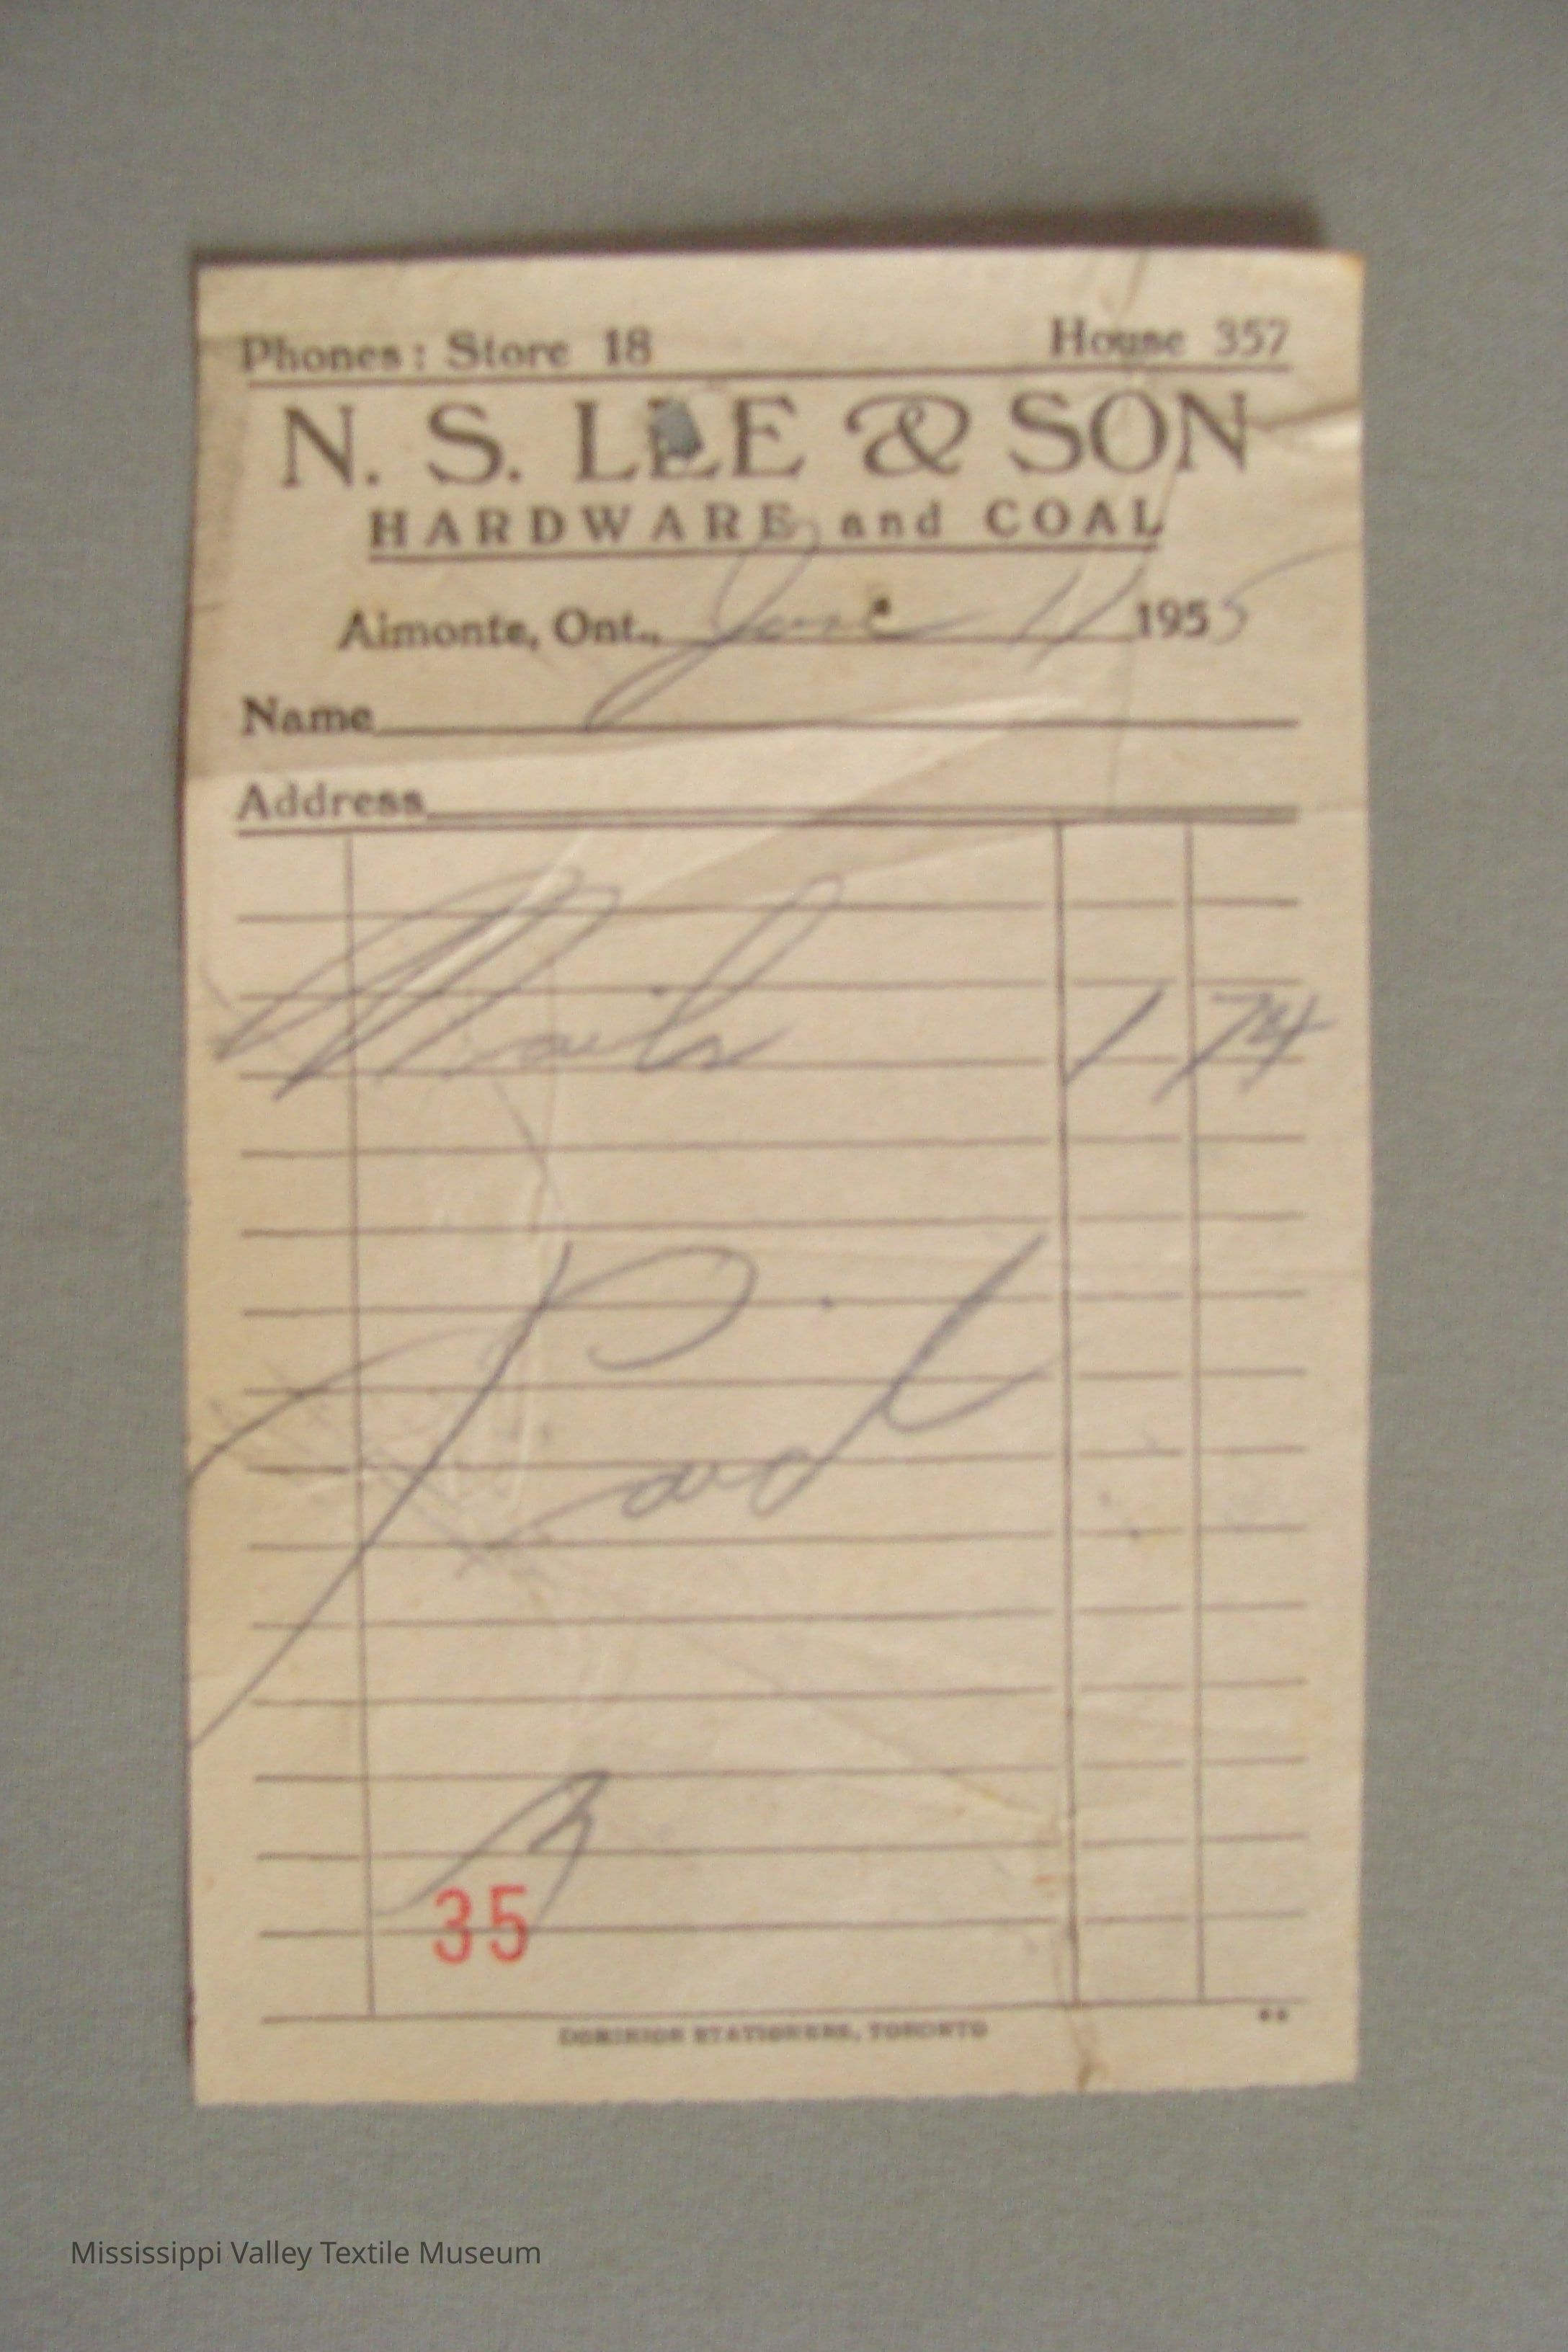 Phones: Store 18 House 357
N. S. LEE & SON
HARDWARE and COAL
Almonte, Ont., June 11 1955
Name
Address
Nails 1 74
Paid
35
DOMINION STATIONERS, TORONTO
Mississippi Valley Textile Museum